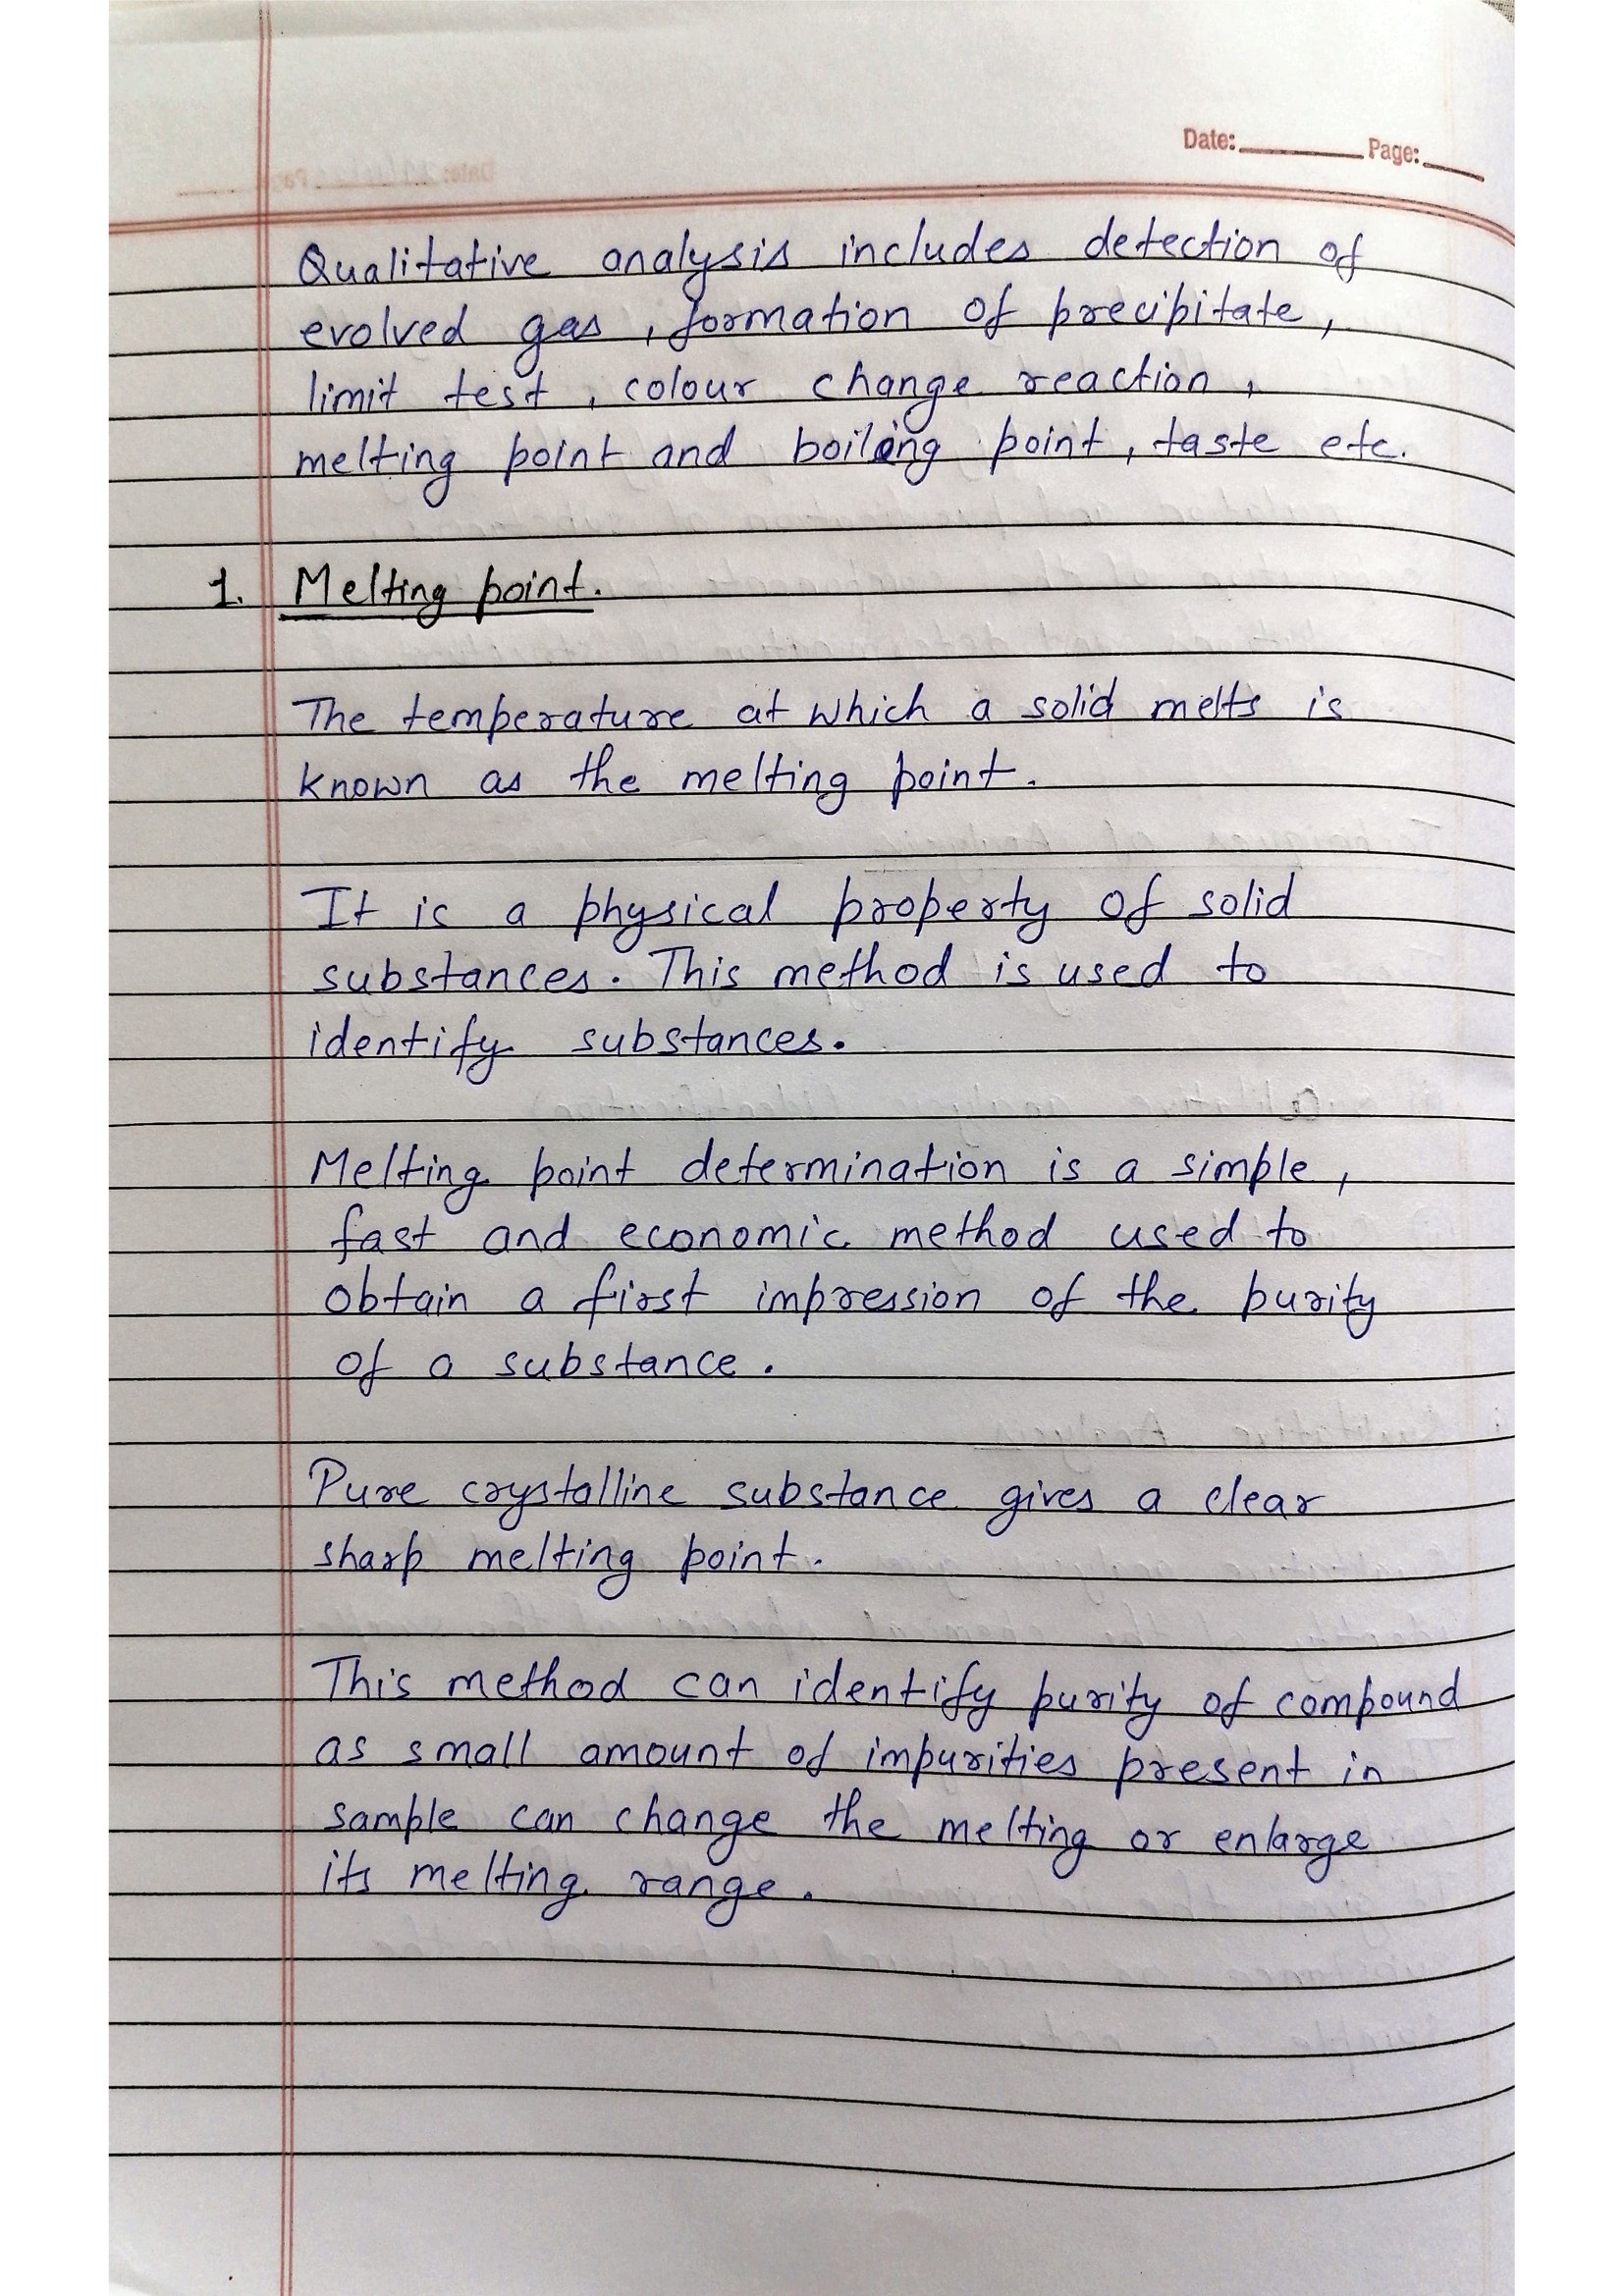 Date: Page:
Qualitative analysis includes detection of
evolved gas, formation of precipitate,
limit test, colour change reaction,
melting point and boiling point, taste etc.
1. Melting point.
The temperature at which a solid melts is
known as the melting point.
It is a physical property of solid
substances. This method is used to
identify substances.
Melting point determination is a simple,
fast and economic method used to
obtain a first impression of the purity
of a substance.
Pure crystalline substance gives a clear
sharp melting point.
This method can identify purity of compound
as small amount of impurities present in
sample can change the melting or enlarge
its melting range.